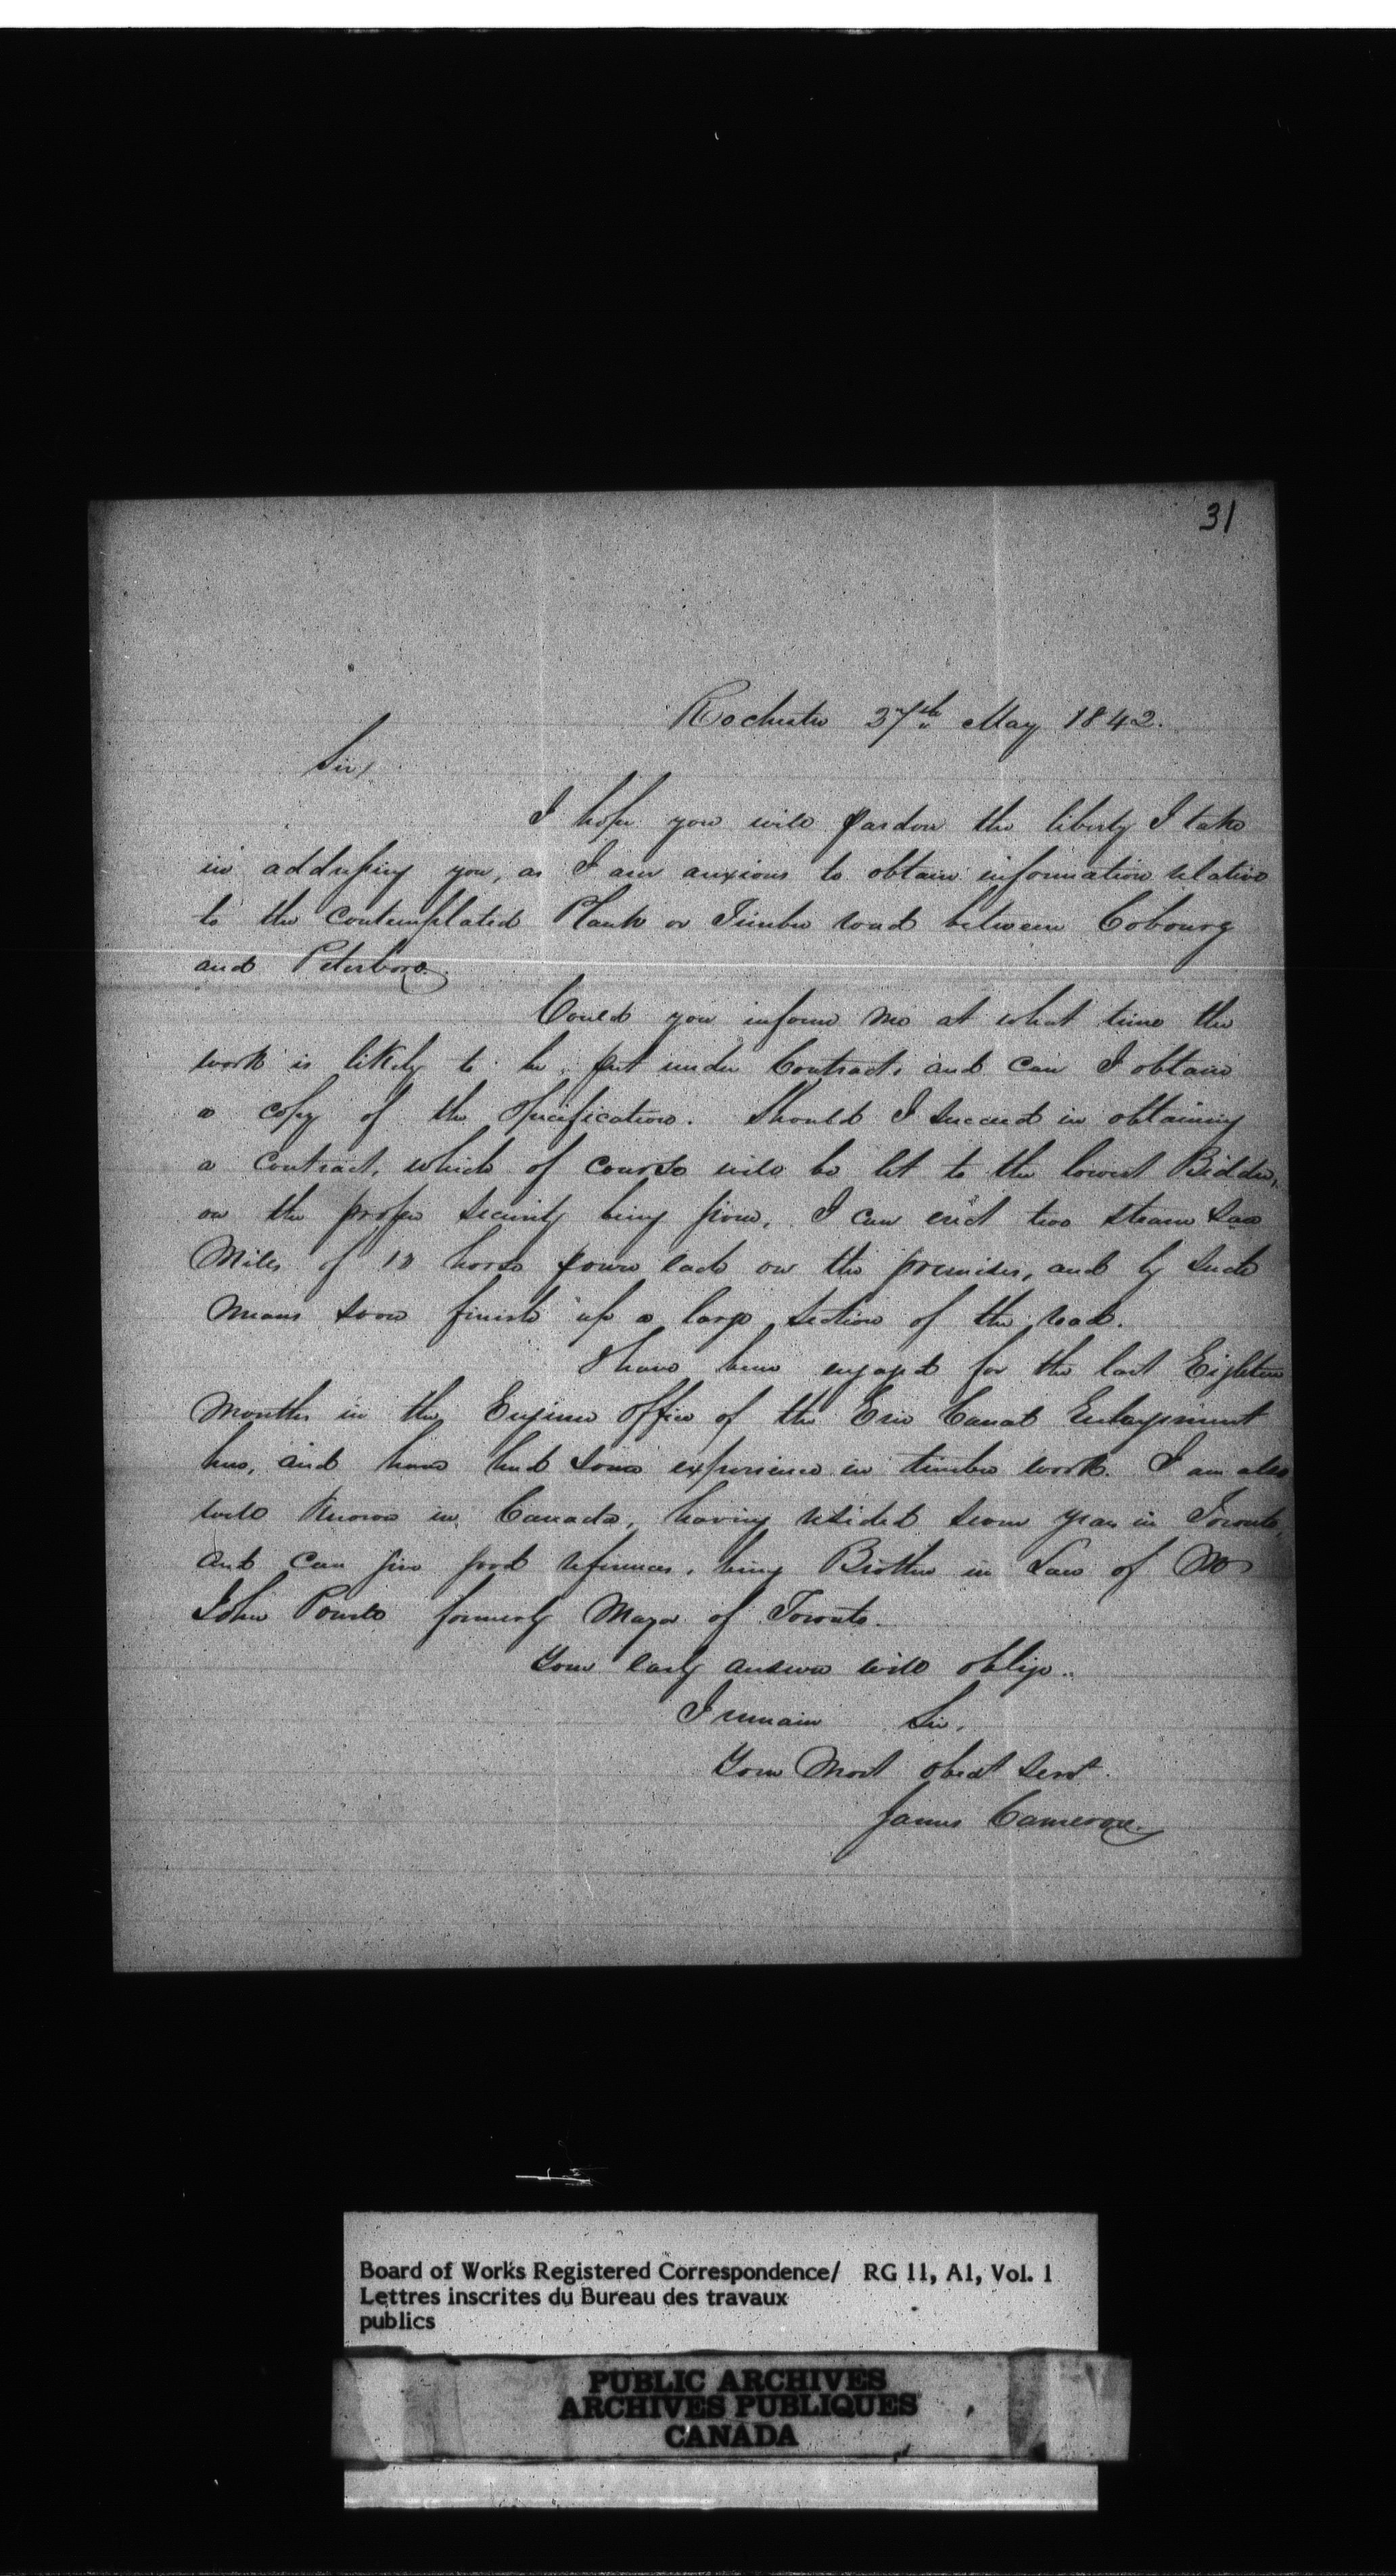 31
Rochester 27th May 1842.
Sir,
I hope you will pardon the liberty I take
in addressing you, as I am anxious to obtain information relative
to the contemplated Plank or Timber road between Cobourg
and Peterboro.
Could you inform me at what time the
work is likely to be put under Contract, and can I obtain
a copy of the Specification. Should I succeed in obtaining
a contract, which of course will be let to the lowest Bidder,
on the proper security being given, I can erect two steam Saw
Mills of horse power each on the premises, and by such
means soon finish up a large section of the road.
I have been engaged for the last Eighteen
Months in the Engineer Office of the Erie Canal Enlargement
here, and have had some experience in timber work. I am also
well known in Canada, having resided seven years in Toronto,
and can give good references, being Brother in Law of Mr
John Powell formerly Mayor of Toronto.
Your early answer will oblige..
I remain Sir,
Your Most obedt Servt.
James Cameron.
Board of Works Registered Correspondence/ RG 11, A1, Vol. 1
Lettres inscrites du Bureau des travaux
publics
PUBLIC ARCHIVES
ARCHIVES PUBLIQUES
CANADA